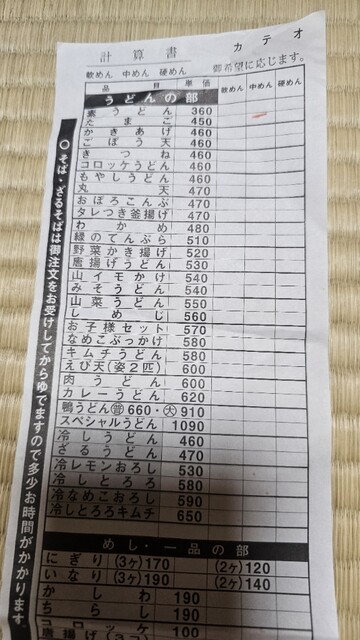 カテオ
計算書
軟めん 中めん 硬めん 御希望に応じます。
品目 単価 軟めん 中めん 硬めん
うどんの部
素うどん 360
たまご 450
かきあげ 460
ごぼう天 460
きつね 460
コロッケうどん 460
もやしうどん 460
丸天 470
おぼろこんぶ 470
タレつき釜揚げ 470
わかめ 480
緑のてんぷら 510
野菜かき揚げ 520
唐揚げうどん 530
山イモかけ 540
みそうどん 540
山菜うどん 550
しめじ 560
お子様セット 570
なめこぶっかけ 580
キムチうどん 580
えび天(姿2匹) 600
肉うどん 600
カレーうどん 620
鴨うどん 普 660・大 910
スペシャルうどん 1090
冷しうどん 460
ざるうどん 470
冷レモンおろし 530
冷しとろろ 580
冷なめこおろし 590
冷しとろろキムチ 650
めし・一品の部
にぎり (3ヶ)170 (2ヶ)120
いなり (3ヶ)190 (2ヶ)140
かしわ 190
ちらし 190
コロッケ 100
唐揚げ(3コ)
○そば・ざるそばは御注文をお受けしてからゆでますので多少お時間がかかります。